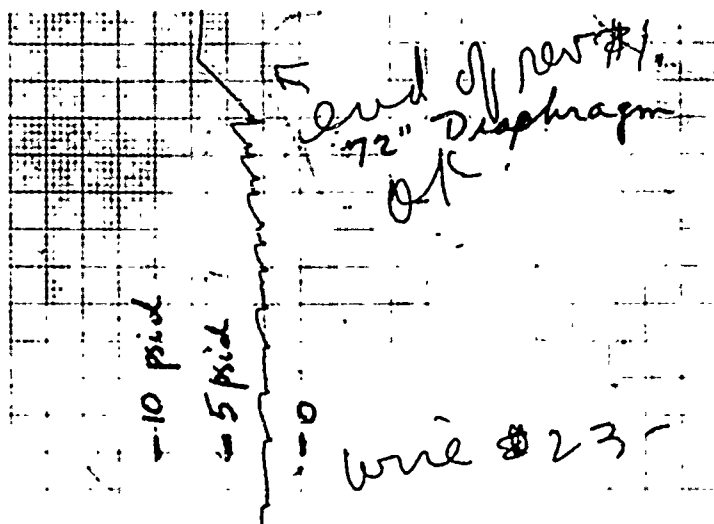 end of rev #1.
72" Diaphragm
OK.
-10 psid
-5 psid
-0
wire #23